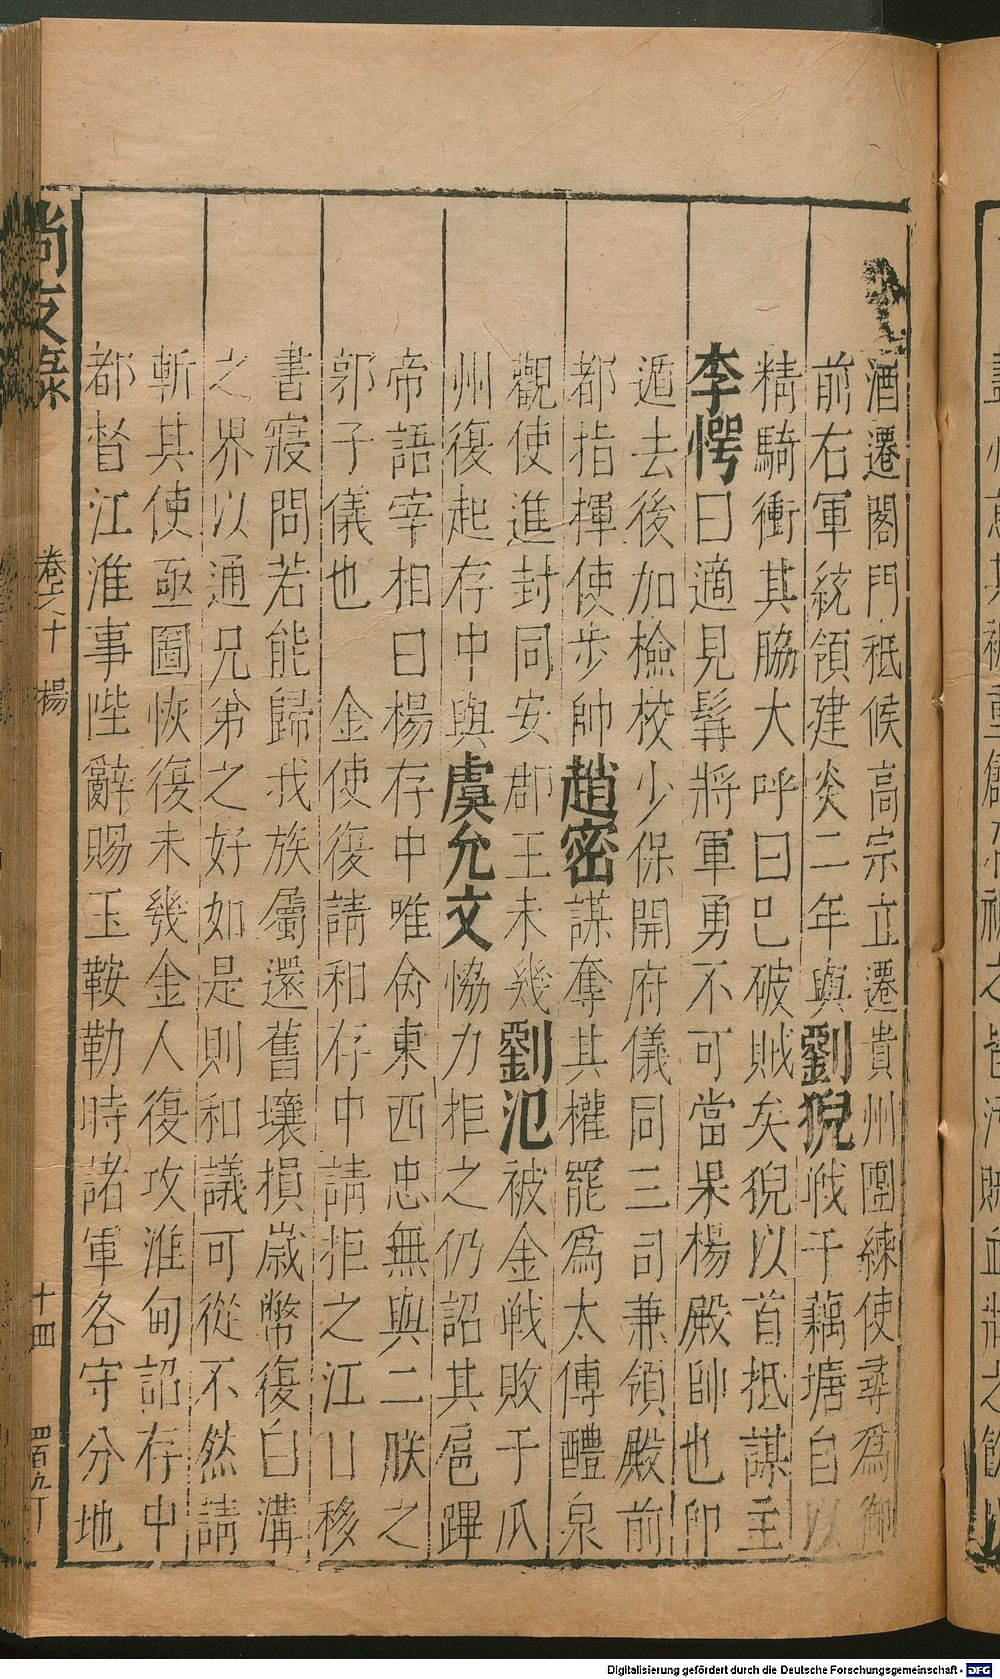 酒遷閣門祗候高宗立遷貴州團練使尋爲御
前右軍統領建炎二年與劉猊戦于藕塘自以
精騎衝其脇大呼曰已破賊矣猊以首抵謀主
李愕曰適見髯將軍勇不可當果楊殿帥也卽
遁去後加檢校少保開府儀同三司兼領殿前
都指揮使步帥趙密謀奪其權罷爲太傅醴泉
觀使進封同安郡王未幾劉氾被金戦敗于瓜
州復起存中與虞允文恊力拒之仍詔其扈蹕
帝語宰相曰楊存中唯命東西忠無與二朕之
郭子儀也　金使復請和存中請拒之江口移
書寢問若能歸我族屬還舊壤損歲幣復白溝
之界以通兄弟之好如是則和議可從不然請
斬其使亟圖恢復未幾金人復攻淮甸詔存中
都督江淮事陛辭賜玉鞍勒時諸軍各守分地
尚友錄
卷之十　楊
十四
四百九丁
Digitalisierung gefördert durch die Deutsche Forschungsgemeinschaft - DFG